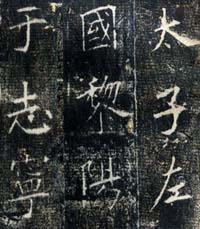 太子左
國黎陽
于志寧